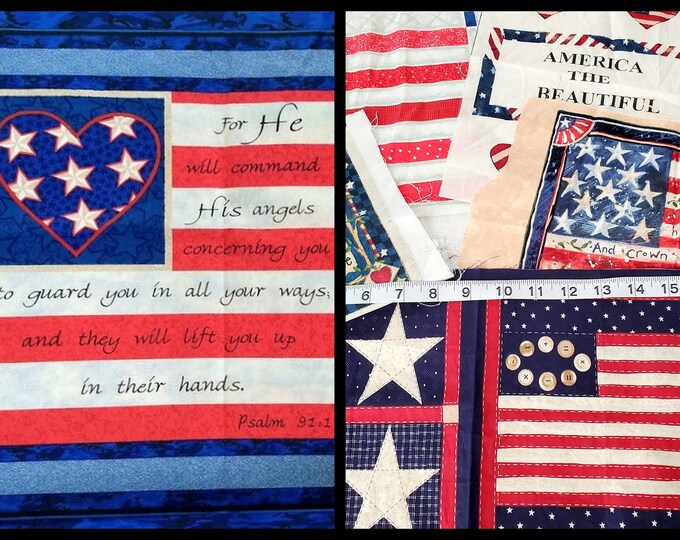 For He
will command
His angels
concerning you
to guard you in all your ways;
and they will lift you up
in their hands.
Psalm 91:1
AMERICA
THE
BEAUTIFUL
And Crown
6 7 8 9 10 11 12 13 14 15